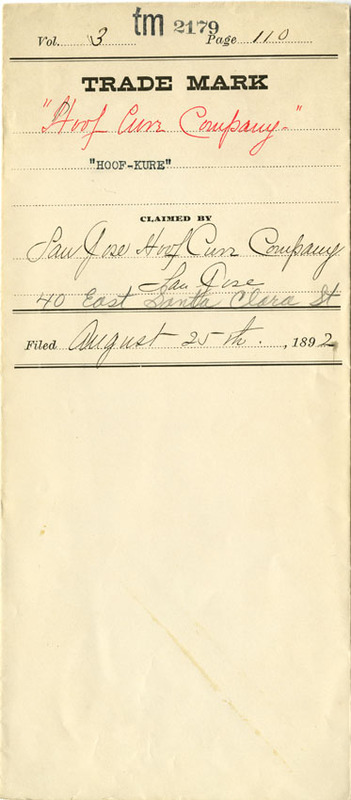 tm 2179
Vol. 3 Page 110
TRADE MARK
"Hoof Cure Company."
"HOOF-KURE"
CLAIMED BY
San Jose Hoof Cure Company
San Jose
40 East Santa Clara St
Filed August 25th. , 1892